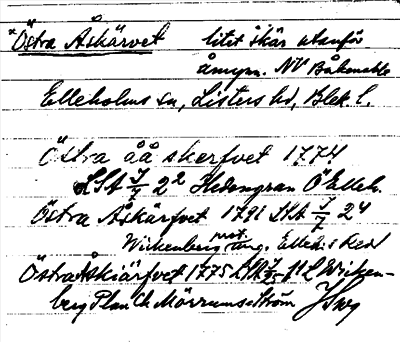 *Östra Åskärvet litet skär utanför
åmynn. NV Båkenabbe
Elleholms sn, Listers hd, Blek. l.
Östra åå skerfvet 1774
LSA 7/7 2² Hedengran Ö Elleh.
Östra Åskärfvet 1791 LSA 7/7 24
Wickenberg prot. ang. Elleh:s sked
Östra Åskiärfvet 1775 Wicken-
berg Plan Ch Mörrumsström